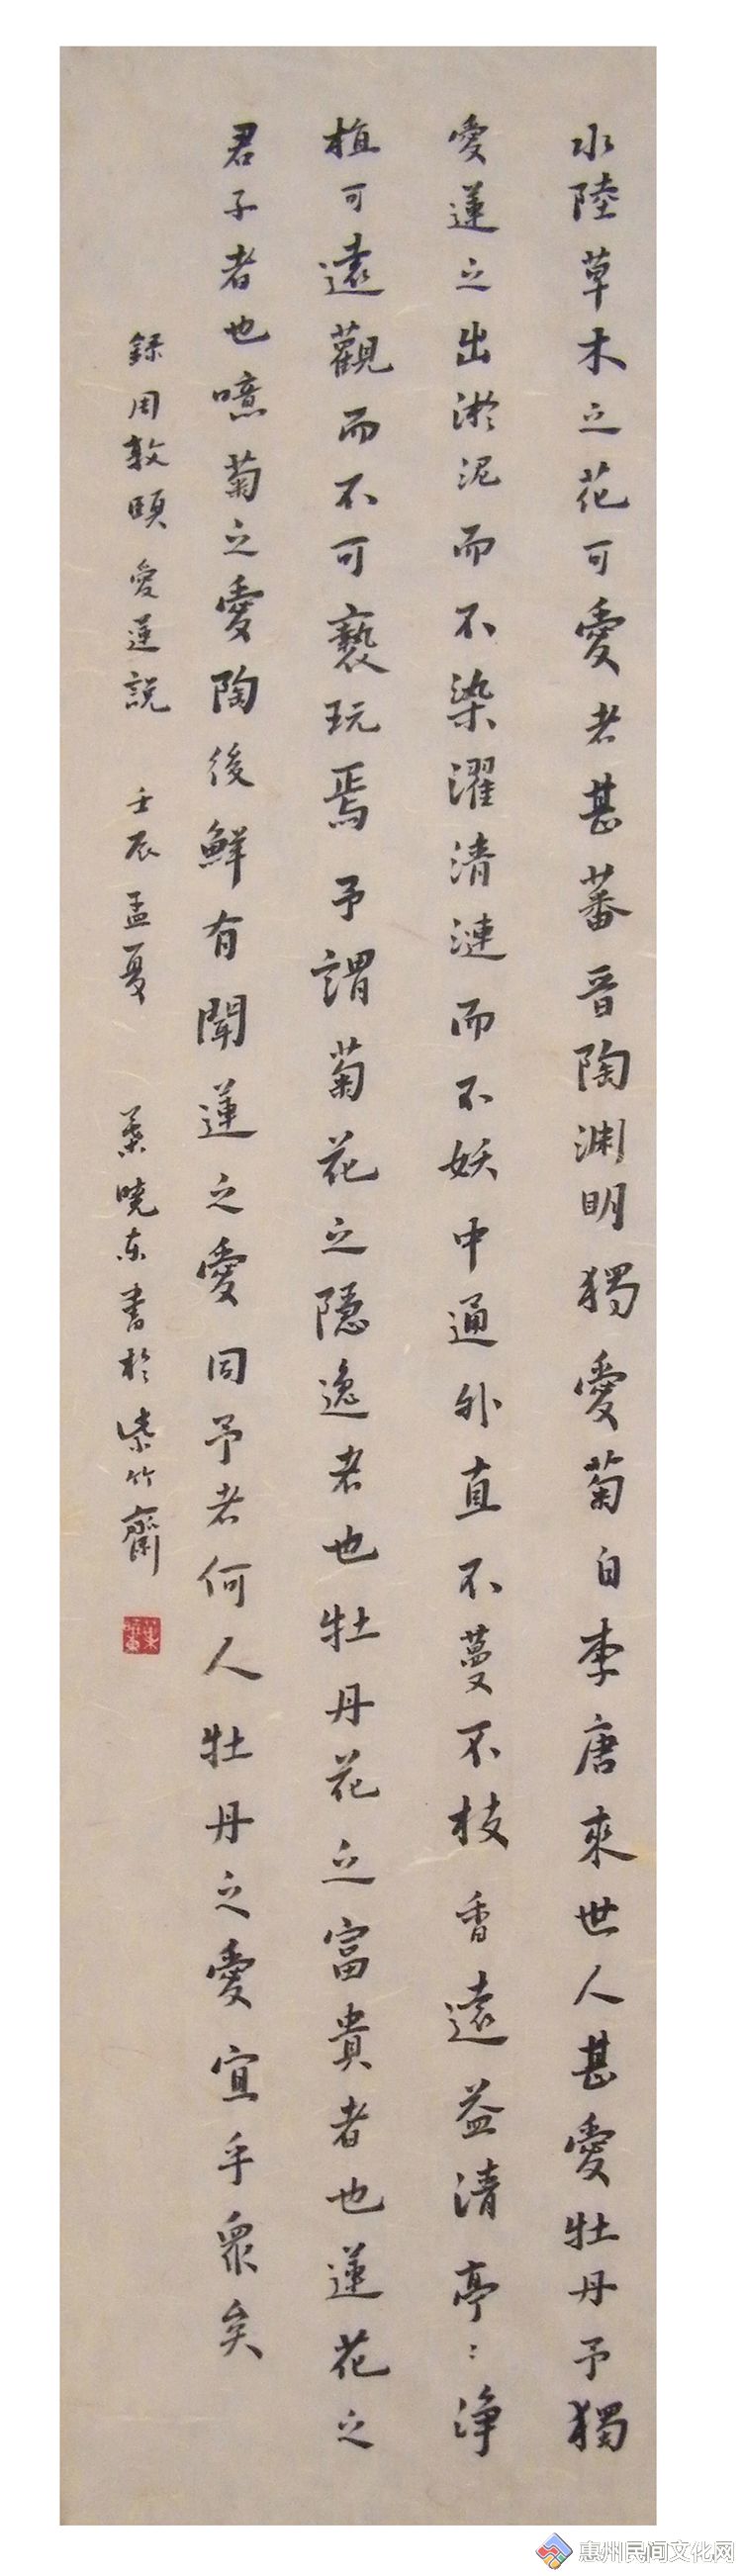 水陸草木之花可愛者甚蕃晉陶渊明獨愛菊自李唐來世人甚愛牡丹予獨
愛蓮之出淤泥而不染濯清漣而不妖中通外直不蔓不枝香遠益清亭〻净
植可遠觀而不可褻玩焉予謂菊花之隱逸者也牡丹花之富貴者也蓮花之
君子者也噫菊之愛陶後鮮有聞蓮之愛同予者何人牡丹之愛宜乎眾矣
錄周敦頤愛蓮說 壬辰孟夏 葉曉东書於紫竹齋
惠州民间文化网